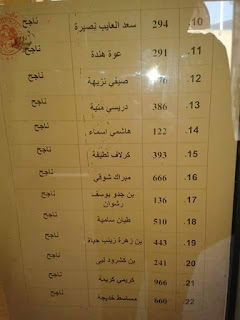 .10 294 سعد العايب نصيرة ناجح
.11 291 عوة هندة ناجح
.12 76 صيفي نزيهة ناجح
.13 386 دريسي منية ناجح
.14 122 هاشمي أسماء ناجح
.15 393 كرلاف لطيفة ناجح
.16 666 مبراك شوقي ناجح
.17 136 بن جدو يوسف رضوان ناجح
.18 510 طيان سامية ناجح
.19 443 بن زهرة زينب حياة ناجح
.20 241 بن كشرود لبنى ناجح
.21 966 كريمي كريمة ناجح
.22 660 خديجة ناجح